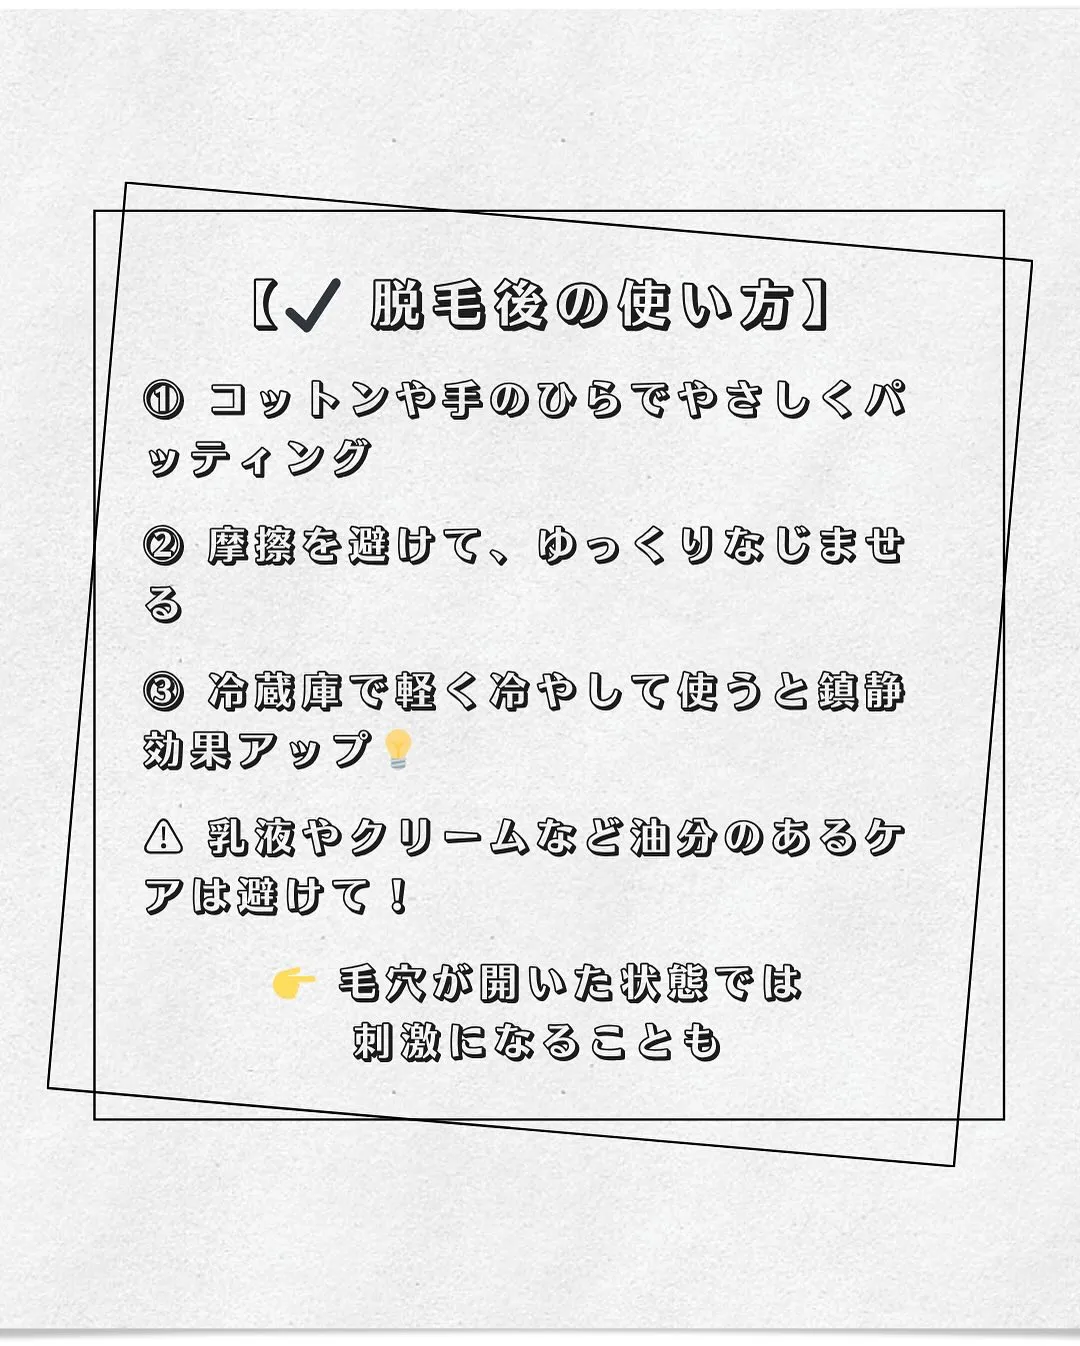 【✔ 脱毛後の使い方】
① コットンや手のひらでやさしくパ
ッティング
② 摩擦を避けて、ゆっくりなじませ
る
③ 冷蔵庫で軽く冷やして使うと鎮静
効果アップ💡
⚠ 乳液やクリームなど油分のあるケ
アは避けて！
👉 毛穴が開いた状態では
刺激になることも